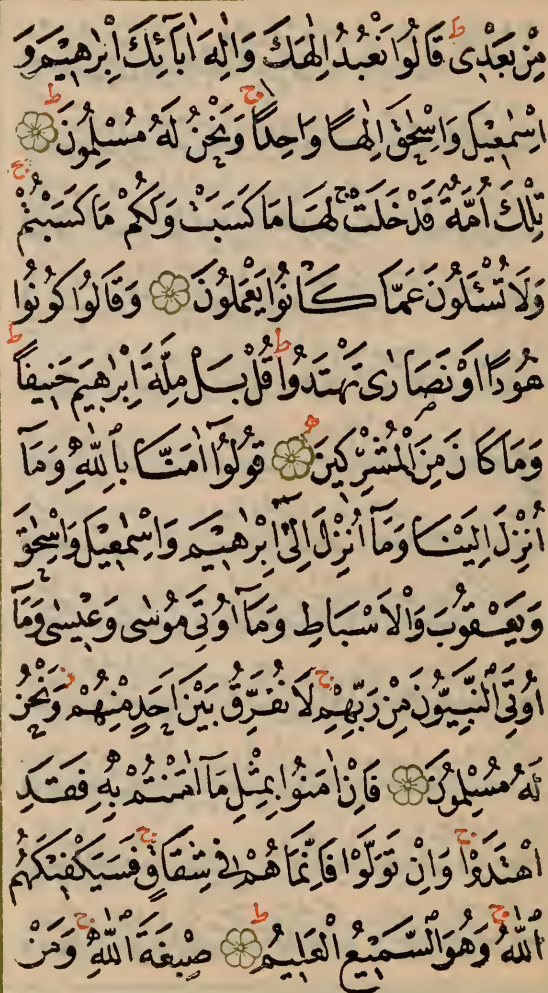 مِنْ بَعْدِى قَالُوا نَعْبُدُ اِلٰهَكَ وَاِلٰهَ اٰبَآئِكَ اِبْرٰهِيْمَ وَ
اِسْمٰعِيْلَ وَاِسْحٰقَ اِلٰهًا وَاحِدًا وَنَحْنُ لَهُ مُسْلِمُونَ
تِلْكَ اُمَّةٌ قَدْ خَلَتْ لَهَا مَا كَسَبَتْ وَلَكُمْ مَا كَسَبْتُمْ
وَلَا تُسْئَلُونَ عَمَّا كَانُوا يَعْمَلُونَ وَقَالُوا كُونُوا
هُودًا اَوْ نَصَارٰى تَهْتَدُوا قُلْ بَلْ مِلَّةَ اِبْرٰهِيمَ حَنِيفًا
وَمَا كَانَ مِنَ الْمُشْرِكِينَ قُولُوا اٰمَنَّا بِاللّٰهِ وَمَآ
اُنْزِلَ اِلَيْنَا وَمَآ اُنْزِلَ اِلٰٓى اِبْرٰهِيْمَ وَاِسْمٰعِيْلَ وَاِسْحٰقَ
وَيَعْقُوبَ وَالْاَسْبَاطِ وَمَآ اُوتِىَ مُوسٰى وَعِيسٰى وَمَآ
اُوتِىَ النَّبِيُّونَ مِنْ رَبِّهِمْ لَا نُفَرِّقُ بَيْنَ اَحَدٍ مِنْهُمْ وَنَحْنُ
لَهُ مُسْلِمُونَ فَاِنْ اٰمَنُوا بِمِثْلِ مَآ اٰمَنْتُمْ بِهِ فَقَدِ
اهْتَدَوْا وَاِنْ تَوَلَّوْا فَاِنَّمَا هُمْ فِى شِقَاقٍ فَسَيَكْفِيكَهُمُ
اللّٰهُ وَهُوَ السَّمِيعُ الْعَلِيمُ صِبْغَةَ اللّٰهِ وَمَنْ